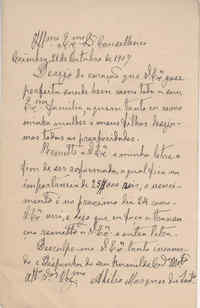 Illmo Exmo Sr Conselheiro
Coimbra, 21 de Outubro de 1907
Desejo do coração que V Exª gose
perfeita saude bem como toda a sua
Exma Familia, a quem tanto eu como
minha mulher e meus filhos desejamos
todas as prosperidades.
Remetto a V Exª a minha letra
a fim de ser reformada, a qual fica na
importancia de 25$000 reis, o vencimento
é no proximo dia 24 como
V Exª vera, e logo que esteja a
remetto a V Exª a outra letra.
Desculpe-me V Exª tanto incomodo
e Disponha do seu humilde Cdo Mto
Attº Obgmo Abilio Marques dos